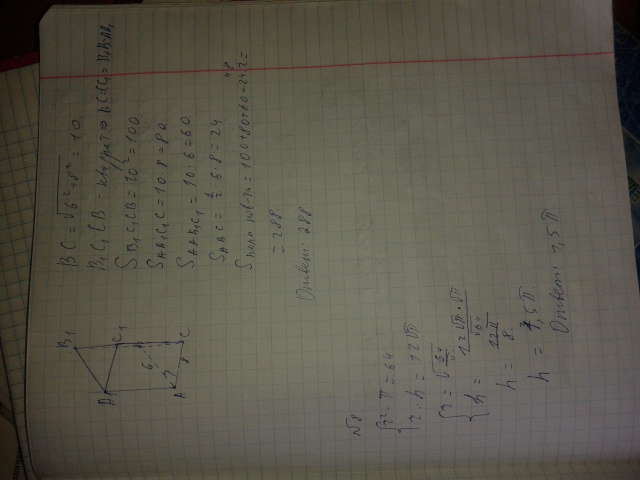 BC = √6²+8² = 10
B₁C₁CB - квадрат ⇒ BC=CC₁=BB₁=AA₁
S B₁C₁CB = 10² = 100
S AA₁C₁C = 10·8 = 80
S AA₁B₁C₁ = 10·6 = 60
S ABC = ½·6·8 = 24
S полн пов-ти = 100+80+60+24·2 =
= 288
Ответ: 288
B₁
A₁
C₁
B
A
C
6
8
№8
r²·π = 64
r·h = 12√π
r = √64/π
h = 12√π·√π/√64
h = 12π/8
h = 1,5π
Ответ: 1,5π